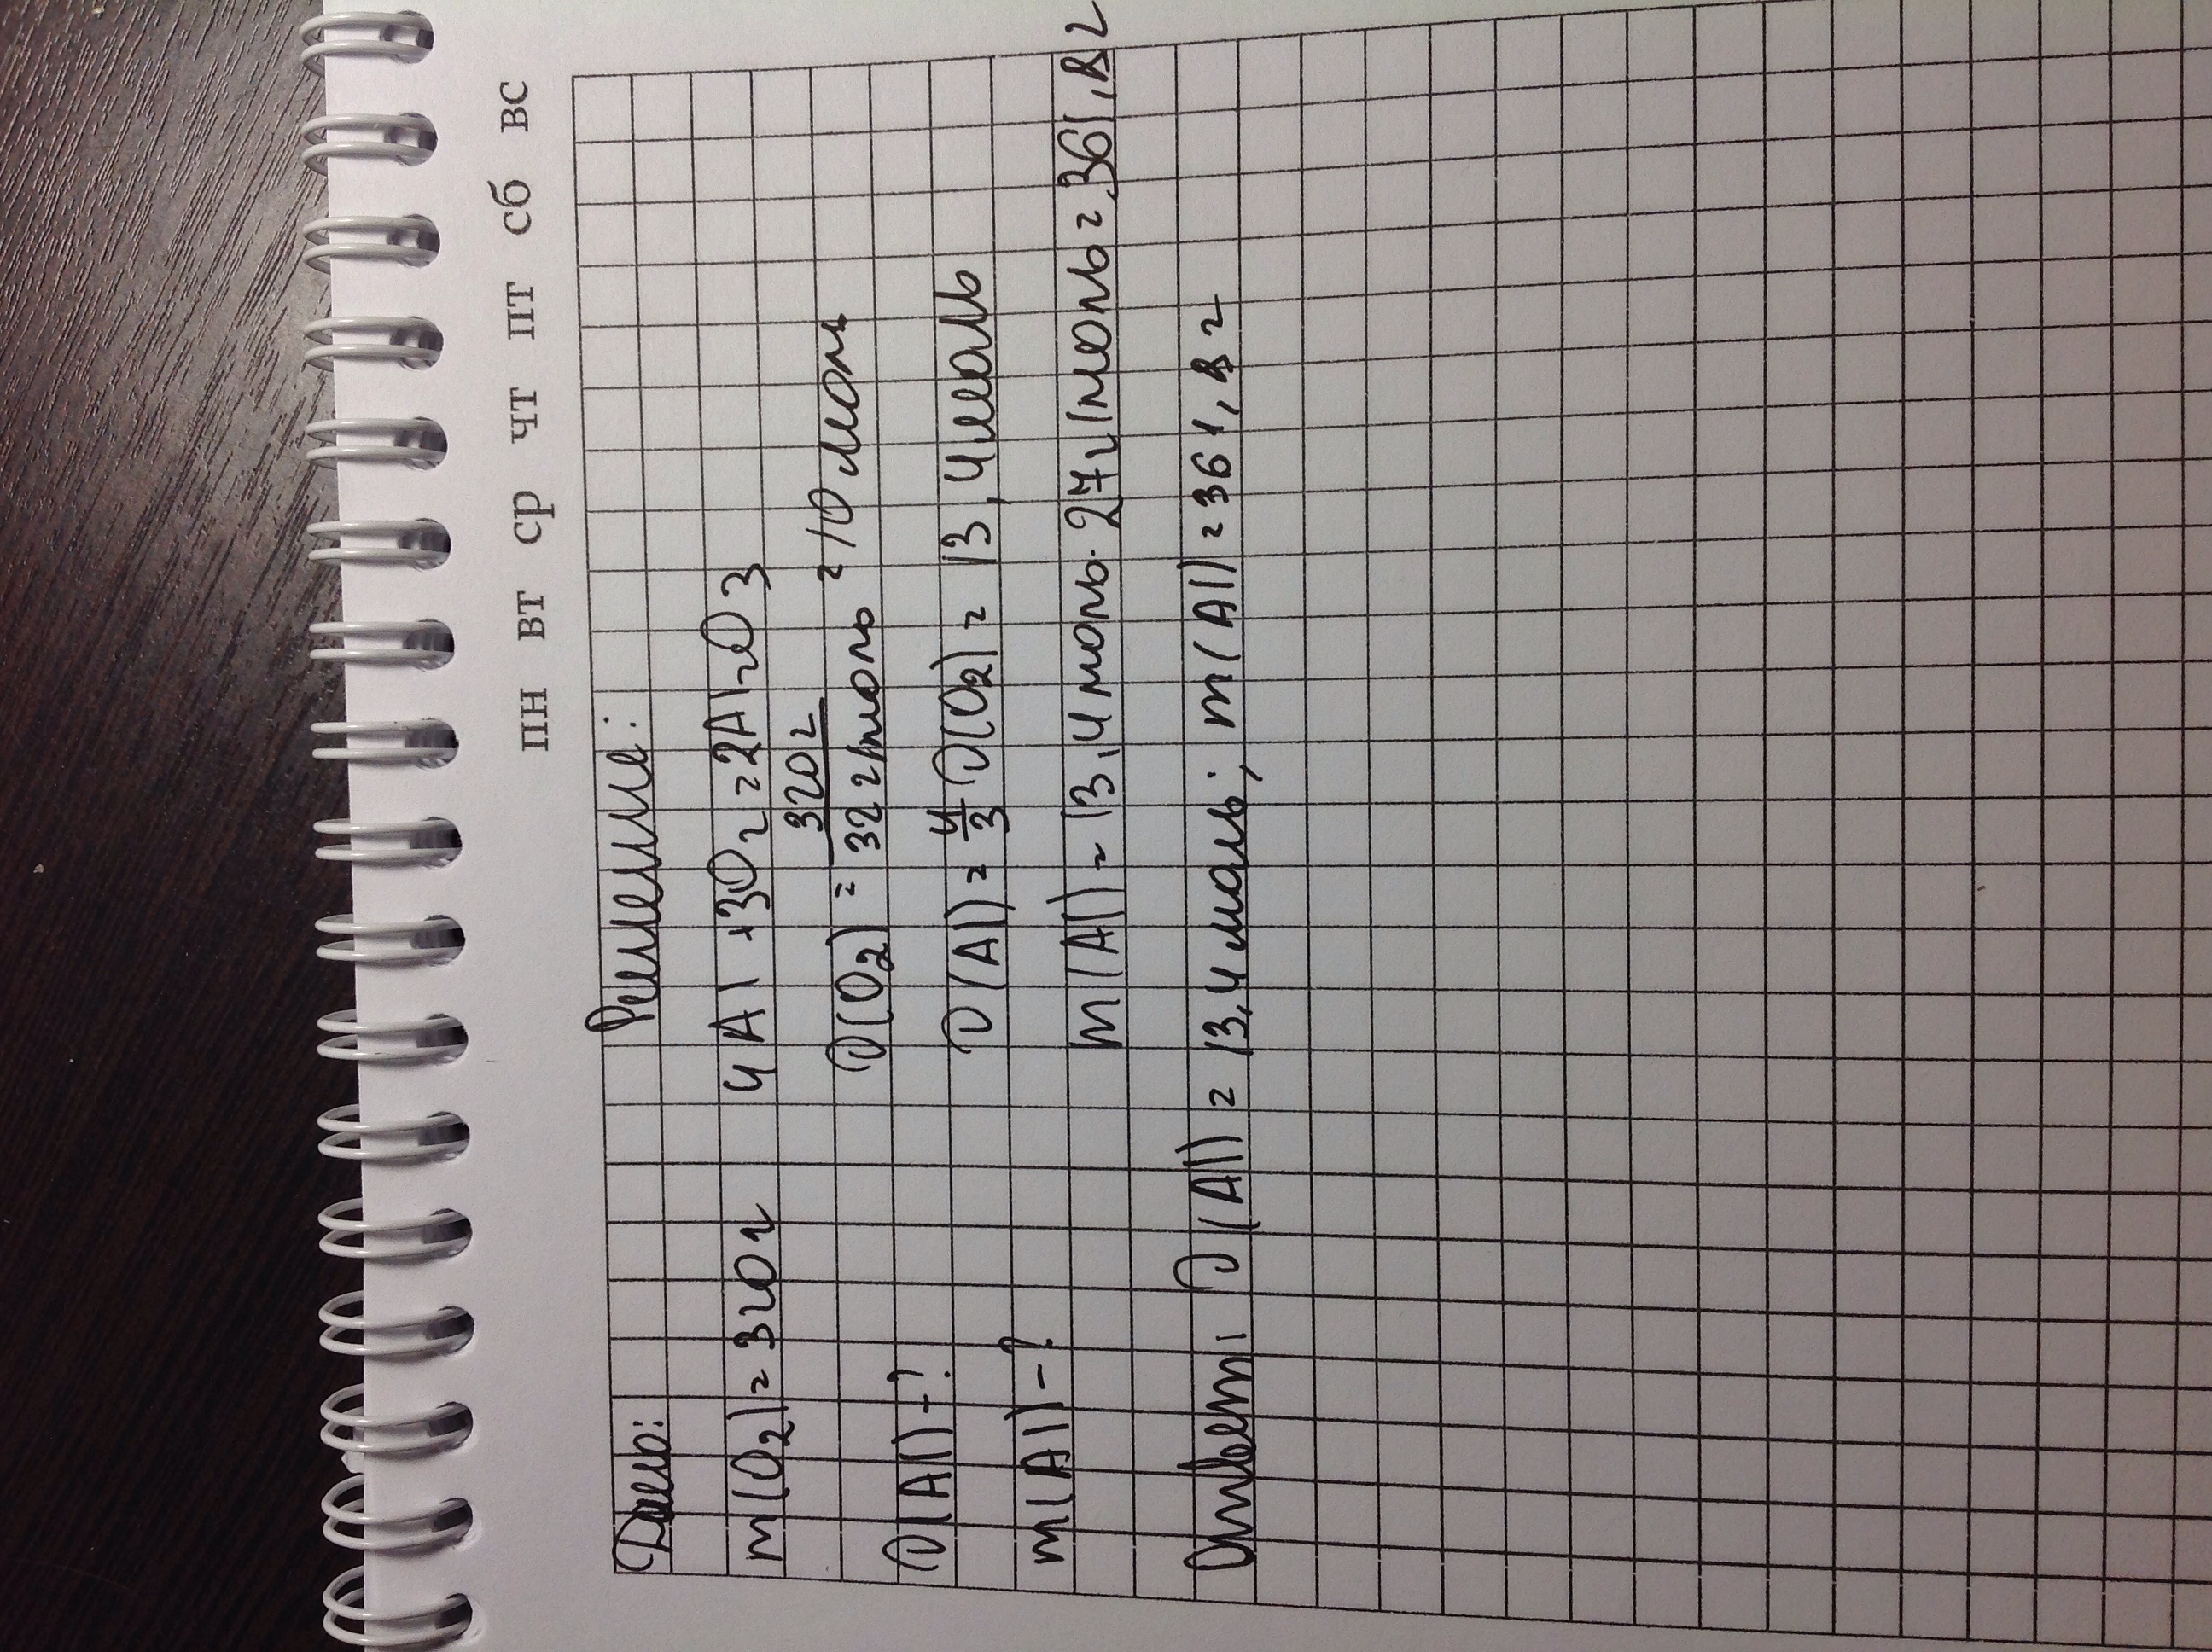 пн вт ср чт пт сб вс
Дано: Решение:
m(O2)=320г 4Al+3O2=2Al2O3
ν(O2)=320г/32г/моль=10моль
ν(Al)-? ν(Al)=4/3ν(O2)=13,4моль
m(Al)-? m(Al)=13,4моль·27г/моль=361,8г
Ответ: ν(Al)=13,4моль; m(Al)=361,8г